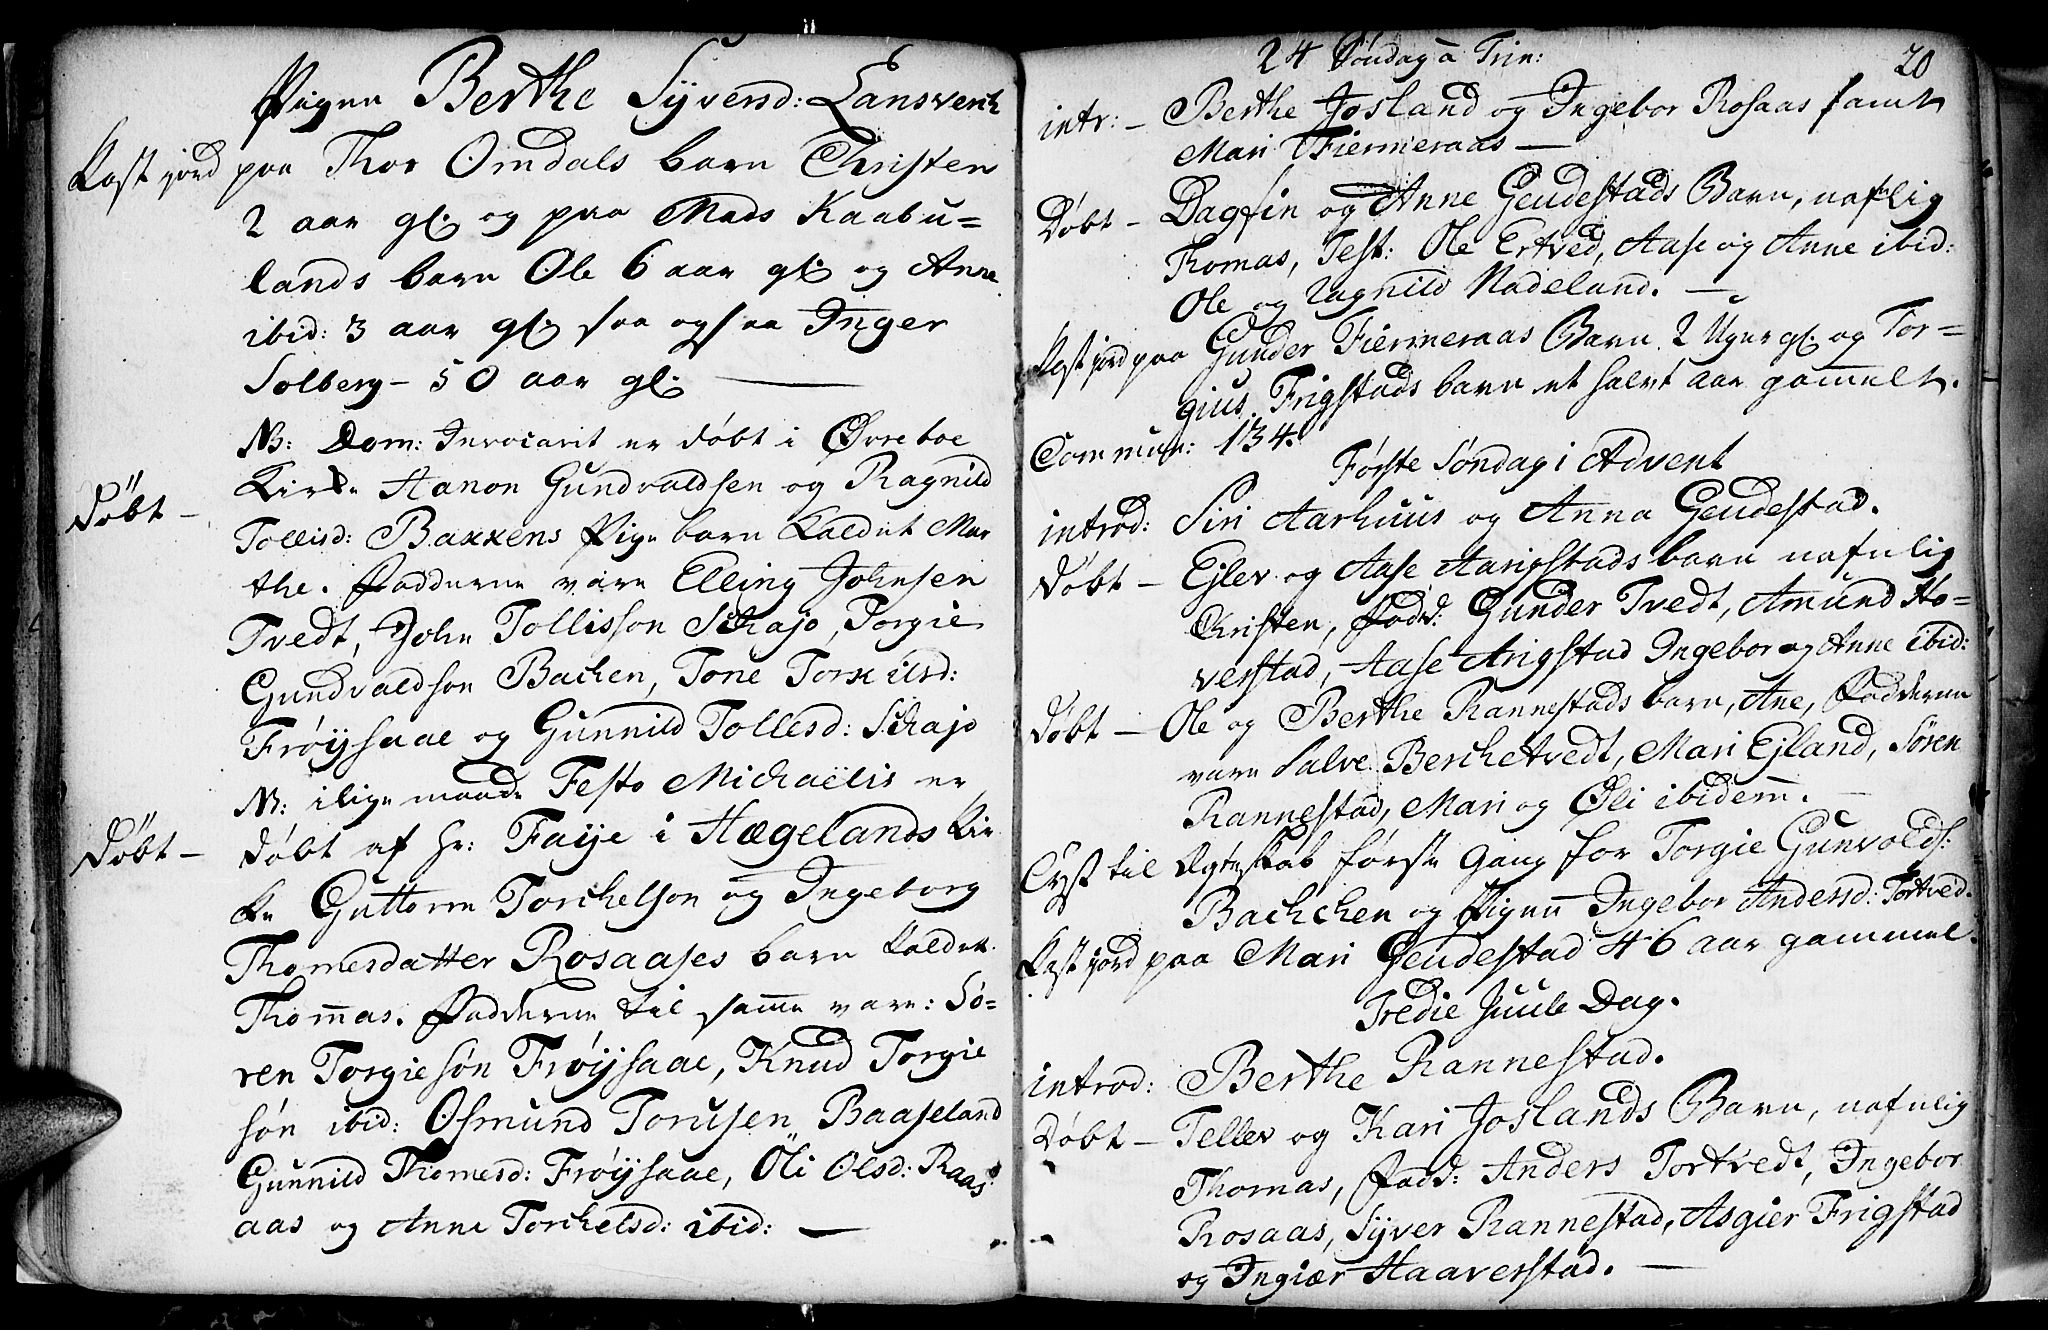 Pigen Berthe Syversd: Lansverk
Kast jord paa Thor Omdals barn Christen
2 aar gl: og paa Mads Kaabu=
lands barn Ole 6 aar gl: og Anne
ibid: 3 aar gl: saa ogsaa Inger
Solberg – 50 aar gl:
NB: Dom: Invocavit er døbt i Øvreboe
Døbt – Kirke Aanon Gundvaldsen og Ragnild
Tollisd: Baxxens Pige barn kaldet Mar
the. Fadderne vare Elling Johnsen
Tvedt, John Tollisson Schajo, Torgie
Gundvaldson Bachen, Tone Torkilsd:
Frøysaae og Gunnild Tollesd: Schajo
NB: ilige maade Festo Michaëlis er
Døbt – døbt af Hr: Faye i Hægelands Kir
ke Guttorm Torchelson og Ingeborg
Thomesdatter Rosaases barn kaldet
Thom̄as. Fadderne til sam̄e vare: Sø=
ren Torgiesøn Frøysaae, Knud Torgie
søn ibid: Osmund Torusen Baaseland
Gunnild Thomesd: Frøysaae, Öli Olsd: Raas
aas og Anne Torchelsd: ibid:
24 Søndag à Trin: 20
intr: – Berthe Josland og Ingebor Rosaas samt
Mari Fiermeraas —
Døbt – Dagfin og Anne Geudestads Barn, nafnlig
Thomas, Test: Ole Ertved, Aase og Anne ibid:
Ole og Ragnild Nadeland. —
Kast jord paa Gunder Fiermeraas Barn 2 Uger gl: og Tor=
gius Frigstads barn et halvt aar gam̄elt.
Commun: 134.
Første Søndag i Advent
introd: Siri Aarhuus og Anna Geudestad.
Døbt – Ejlev og Aase Aarigstads barn nafnlig
Christen, Fadd: Gunder Tvedt, Amund Ho=
verstad, Aase Arigstad Ingebor og Anne ibid:
Døbt – Ole og Berthe Rannestads barn, Ane, Fadderne
vare Salve Berchetvedt, Mari Ejland, Søren
Rannestad, Mari og Øli ibidem̄. —
Lyst til Ægteskab første gang for Torgie Gunvolds:
Bachchen og Pigen Ingebor Andersd: Tortved.
Kast jord paa Mari Geudestad 46 aar gammel.
Tredie Juule Dag.
introd: Berthe Rannestad.
Døbt – Tellev og Kari Joslands Barn, nafnlig
Thomas, Fadd: Anders Tortvedt, Ingebor
Rosaas, Syver Rannestad, Asgier Frigstad
og Ingiær Haaverstad. —